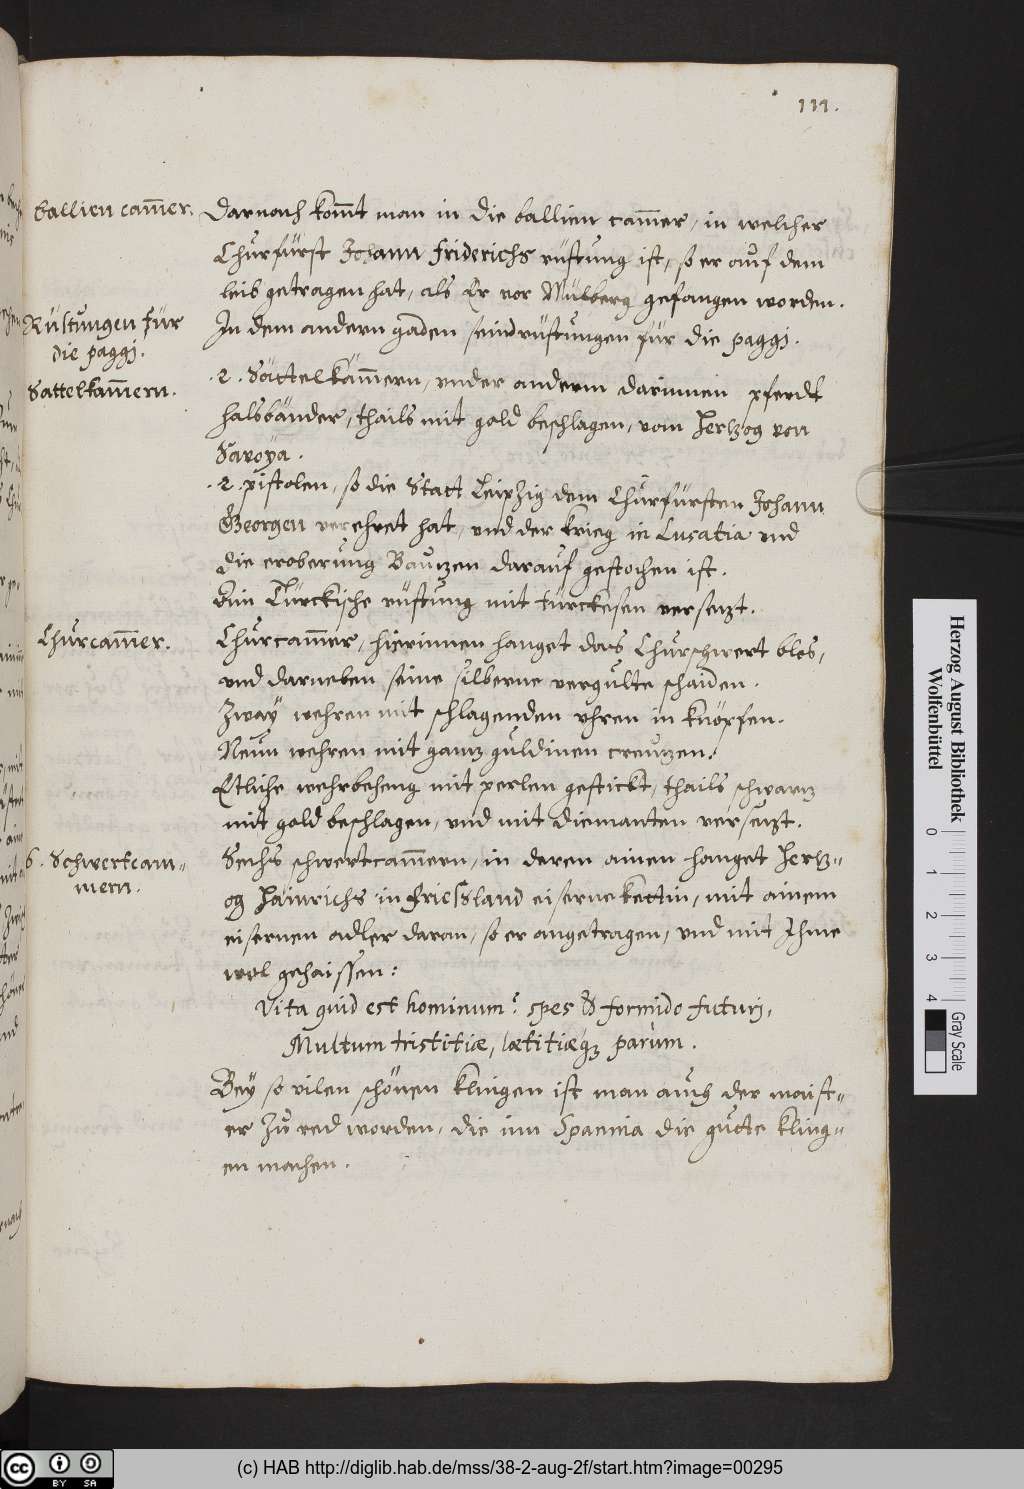 111.
ballien cam̄er. Darnach kom̄t man in die ballien cam̄er, in welcher
Churfürst Johann Friderichs rüstung ist, so er auf dem
leib getragen hat, als Er vor Mülberg gefangen worden.
Rüstungen für In dem andern gaden seind rüstungen für die paggj.
die paggj.
Sattelkam̄ern. .2. Sattelkam̄ern, vnder anderm darinnen pferdt
halsbänder, thails mit gold beschlagen, vom Hertzog von
Savoÿa.
.2. pistolen, so die Statt Leipzig dem Churfürsten Johann
Georgen verehret hat, vnd der krieg in Lusatia vnd
die eroberung Bautzen darauf gestochen ist.
Ein Türckische rüstung mit türckesen versezt.
Churcam̄er. Churcam̄er, hierinnen hanget das Churschwert blos,
vnd darneben seine silberne vergulte schaiden.
Zwaÿ wehren mit schlagenden vhren in knöpfen.
Neun wehren mit ganz guldinen creutzen.
Etliche wehrbeheng mit perlen gestickt, thails schwarz
mit gold beschlagen, vnd mit diemanten versezt.
6. Schwertcam- Sechs schwertcam̄ern, in deren ainen hanget Hertz-
mern. og Hainrichs in Friesland eiserne kettin, mit ainem
eisernen adler daran, so er angetragen, vnd mit Ihme
wol gehaissen:
Vita quid est hominum? spes & formido futurj,
Multum tristitiæ, lætitiæq3 parùm.
Beÿ so vilen schönen klingen ist man auch der maist-
er zu red worden, die inn Spannia die gutte kling-
en machen.
Herzog August Bibliothek
Wolfenbüttel
0 1 2 3 4
Gray Scale
cc BY SA
(c) HAB http://diglib.hab.de/mss/38-2-aug-2f/start.htm?image=00295